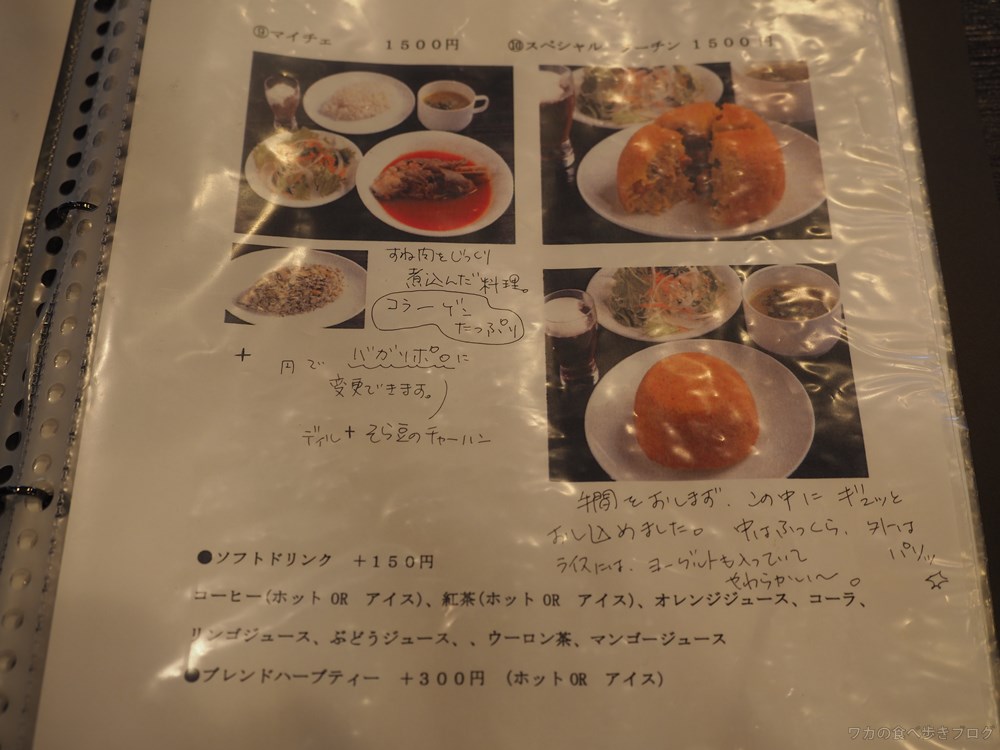 ⑨マイチェ　1500円
⑩スペシャル　ーチン 1500円
すね肉をじっくり
煮込んだ料理。
コラーゲン
たっぷり
+　円で　バガリポロに
変更できます。
ディル+そら豆のチャーハン
手間をおしまず、この中にギュッと
おし込めました。中はふっくら、外は
パリッ☆
ライスには、ヨーグルトも入っていて
やわらかい〜。
●ソフトドリンク　+150円
コーヒー(ホット OR アイス)、紅茶(ホット OR アイス)、オレンジジュース、コーラ、
リンゴジュース、ぶどうジュース、、ウーロン茶、マンゴージュース
●ブレンドハーブティー　+300円　(ホット OR アイス)
ワカの食べ歩きブログ